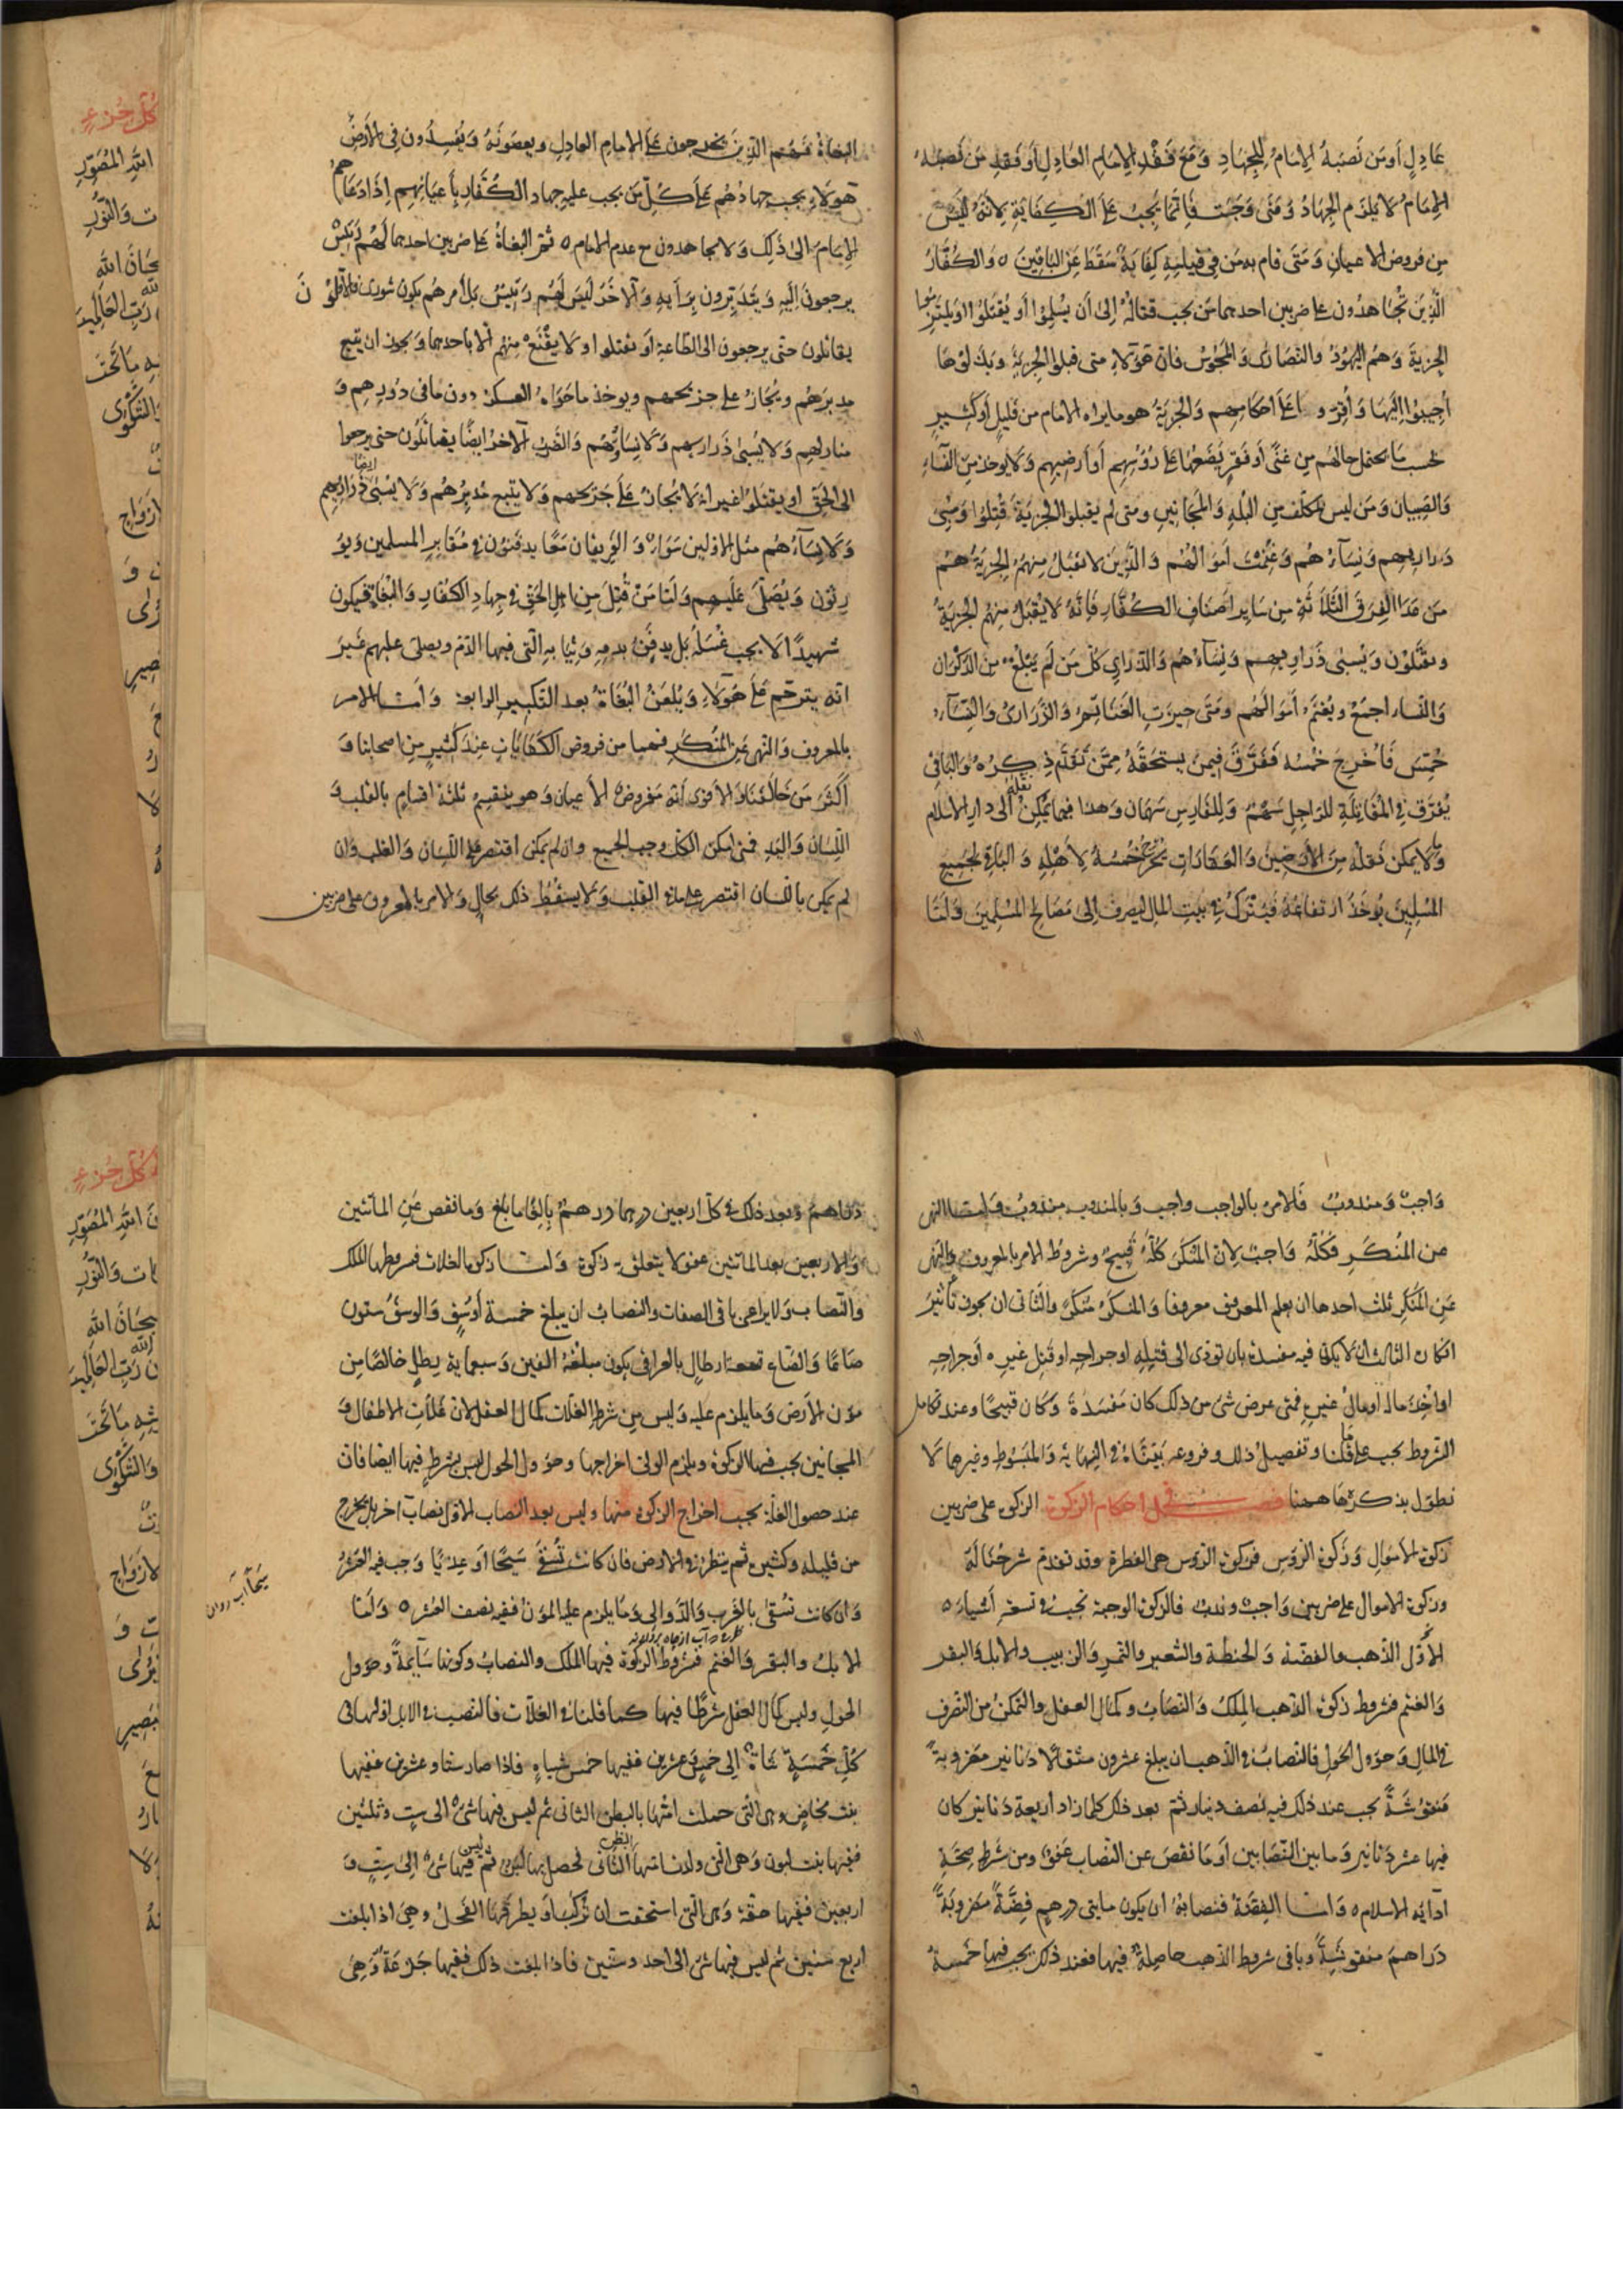 عَادِلٍ أَو مَن نَصَبَهُ الإمَامُ لِلجِهَادِ وَمَعَ فَقْدِ الإمَامِ العَادِلِ أَو فَقدِ مَن نَصَبَهُ
الإمَامُ لَا يَلزَم الجِهَادُ وَمَتَى وَجَبَ فَإِنّمَا يَجِبُ عَلَى الكِفَايَةِ لِأنّهُ لَيسَ
مِن فروض الاعيانِ وَمَتَى قام به مَن فِي قيامِهِ كِفَايَةٌ سَقَطَ عَنِ البَاقِينَ ه وَالكُفّارُ
الَّذِينَ يُجَاهَدُون على ضربين احدهما مَن يجب قتالُهُ إلى أَن يُسْلِمُوا أَو يُقتَلُوا اوَيلتَزِمُوا
الجِزيةَ وَهُم اليَهُودُ والنّصَارى وَالمَجُوسُ فانّ هَؤلاءِ متى قبلوا الجِزيَةَ وَبَذَلُوهَا
أُجِيبُوا إِلَيهَا وَأُقِرّوا عَلَى أَحكامِهِم وَالجِزيَةُ هو ما يراه الامام من قَلِيلٍ أو كَثِيرٍ
بحَسبِ مَا يحتمل حالُهُم مِن غنىً أو فَقرٍ يَضَعُهَا عَلى رُؤُسِهِم أَو أَرضِيهِم وَلَا يوخذ مِنَ النّسآءِ
وَالصّبيان وَمَن ليس بمكلّف مِن البُله وَالمجَانِينِ ومتى لم يقبلوا الجِزيَةَ قُتِلُوا وَسُبِىَ
ذَرارِيهِم وَنِسَآءُهُم وَغُنِمَت اَموالُهُم وَالَّذِين لا تقبَلُ مِنهُم الجِزيَةُ هُم
مَن عَدَا الفِرَقَ الثَّلَاثَةَ مِن سَايِر اَصنَافِ الكُفّارِ فَاِنّهُ لَا يُقبَل مِنهُم الجزيَةُ
ويقتَلُون وَيُسبىٰ ذَرَارِيهِم وَنِسَآءُهُم وَالذرَارِي كُلّ مَن لَم يَبلُغ مِن الذكُوران
وَالنّسَاء اجمَعُ ويُغنَمُ أموَالُهُم وَمَتَى حِيزَتِ الغَنَائِمُ وَالذّرَارىُ وَالنّسَآءُ
خُمِّسَ فَأُخرِجَ خُمُسُهُ فَفُرِّقَ فِيمن يستحَقُّهُ مِمَّن تَقَدَّم ذِكرُهُ وَالبَاقِي
يُفَرّق فِي المُقَاتِلَةِ للرَاجِلِ سَهمٌ وَلِلفَارِسِ سَهمَان وَهذا فيما يُمكِنُ نَقلُهُ اِلَى دارِ الاسلامِ
وَمَا لا يمكِن نَقلُهُ مِن الأَرَضِينَ وَالعَقَارَاتِ يُخرَجُ خُمسُهُ لِأَهلِهِ وَالبَاقِي لجميعِ
المُسلِمِينَ يُوخَذُ ارتفَاعُهُ فَيُترَكُ فِي بَيتِ المَالِ لِيُصرَف اِلى مَصَالِح المُسلِمِينَ وَأَمّا
البغَاةُ فَهُم الّذِينَ يَخرجون عَلى الامامِ العادِلِ ويعصَونَهُ وَيُفسِدُون فِي الأَرضِ
فهَولَاءِ يجب جِهادُهُم عَلَى كُلِّ مَن يجب عليهِ جهاد الكُفّارِ بِأَعيَانِهِم إِذَا دَعَاهُم
الإِمَامُ الى ذَلِك وَلا يجاهَدون مع عدم الامام ه ثم البُغاةُ عَلى ضربين احدهما لَهُم رَئيسٌ
يرجعونَ إِلَيهِ وَيَتَدَبّرون بِرَأيِهِ وَالآخَرُ لَيسَ لَهُم رَئِيسٌ بَل أَمرهُم يكون شورى فالأوّلون
يقاتلون حتى يرجعون الى الطّاعةِ أو يقتلوا وَلَا يُقنَعُ مِنهُم الّا بأحدهما وَيجوز ان يتبع
مدبرَهُم وَيُجَازُ على جريحهم ويوخذ ما حَوَاهُ العسكر دون ما فى دُورِهِم وَ
منازلِهِم وَلَا يُسبى ذَرارِيهِم وَلَا نِسَاؤُهُم وَالضّربُ الآخرُ ايضًا يقاتَلُون حتى يرجعوا
الى الحَق او يقتَلوا غير انّهُ لَا يُجازُ عَلَى جَرِيحهم وَلا يتبع مُدبِرُهُم وَلَا يُسبىٰ ايضًا ذَرَارِيهِم
وَلَا نِسَآءُهُم مثل الاوّلين سَوآءٌ وَالفَرِيقان مَعًا يدفَنُون فِي مَقَابِرِ المسلمين وَيُو
رثون وَيُصَلّى عَلَيهِم وَاَمّا مَن قُتِلَ مِن اهلِ الحَقّ فِي جِهَادِ الكفَّارِ وَالبُغَاةِ فيكون
شهيدًا لَا يجب غسلُهُ بَل يدفَنُ بدمِهِ وَثِيَابِهِ الّتي فيها الدّم ويصلّى عليهم غَيرَ
انّه يترحّم عَلَى هَؤلَاءِ وَيُلعَنُ البُغَاةُ بعد التّكبيرِ الرابعةِ وَأمّا الامر
بالمعروف وَالنّهى عَنِ المُنكَرِ فهما من فروض الكفَايَاتِ عِندَ كَثِيرٍ مِن اصحابِنا وَ
اكثَر مَن خالَفَنَا وَالاَقوى أنّهُ مِن فروضِ الأعيان وَهو ينقسِمُ ثلثَة اقسامٍ بالقَلب وَ
اللِّسَانُ وَاليَدِ فمتى امكن الكلّ وجب الجميع وان لم يمكن اقتصر على اللسان وَالقلب وَان
لم يمكن باللسان اقتصر على ما فى القَلب وَلَا يسقُطُ ذلك بحالٍ وَالامر بالمعروف على ضربين
وَاجبٌ وَمندوبٌ فَالامرُ بالواجبِ واجب وَبالمندوب مندوبٌ وَأمّا النهى
عن المُنكَرِ فَكُلّهُ وَاجبٌ لِانّ المُنكَرَ كلّهُ قَبِيحٌ وشروط الامر بالمعروف وَالنهى
عَنِ المُنكَرِ ثَلث احدها ان يعلم المعروف معروفًا وَالمُنكرَ مُنكَرًا وَالثّانى ان يجوز تأثِيرَ
انكاره الثالث ان لا يكون فيه مفسدة بان تؤدّى الى قتلِهِ اوجراحِهِ او قَتلِ غيرِه أو جراحِهِ
او اخذِ مالِهِ او مالِ غيرِهِ فمتى عرض شئ من ذلك كان مَفسَدةً وَكَان قبيحًا وعند تكامل
الشروط يجب على مَا قُلنا وتفصيل ذلك وفروعه بَيّنّاهُ فِي النِهَايَةِ وَالمَبسُوطِ وغيرهما لَا
نطوّل بذكرِهَا ههنا فصل فى احكام الزكوة الزكوة على ضربين
زكوة الأموَالِ وَزَكوة الرؤسِ فزكوة الرّؤس هى الفطرة وقد تقدّم شرحُنَا لَهَا
وزكوة الاموال على ضربين وَاجبٌ وندبٌ فالزكوة الوجبة تجبُ فى تسعةِ أَشيآءَ ه
الأَوّل الذّهب والفضّة وَالحنطة والشعير والتمر وَالزبيب والابل والبقر
وَالغنم فشروط زكوة الذهب المِلكُ وَالنّصَابُ وكمال العقل والتمكن من التصرف
فِي المالِ وَحؤول الحَولِ فالنّصَابُ فِي الذّهب ان يبلغ عشرون مثقَالًا دنانير مَضروبةً
مَنقُوشَةً يجب عند ذلك فيه نصف دينار ثمّ بعد ذلك كلما زاد اربعة دنانير كان
فيها عشر دَنانير وَما بين النّصَابين اَو مَا نقصَ عن النّصاب عَفوٌ ومن شَرطِ صِحّةِ
آدآئِهِ الاسلام ه وَأَمّا الفِضّةُ فنصابُهُ ان يكون مايتى درهم فِضّةً مَضروبَةً
دَراهمَ منقوشَةً وباقى شروط الذّهب حاصِلةٌ فيها فعند ذلك يجب فيها خَمسَةُ
دَراهمَ وبعد ذلك فى كل اربعين درهما درهمٌ بَالِغًا مابلغ وَما نقص عَنِ المأتين
وَالاربعين بعد المأتين عفو لا يتعلّق بهِ زكوة وَأمّا زكوة الغلات فشروطها الملك
وَالنّصاب وَلا يراعى باقى الصفات والنصابُ ان يبلغ خمسة أَوسُقٍ وَالوسقُ ستون
صَاعًا وَالصّاع تسعة ارطالٍ بالعراقى يكون مبلَغُهُ الفين وَسبعماية رطلٍ خالصًا مِن
مؤن الارض وَما يلزم عليه وَليس مِن شرطِ الغلات كمال العقل لانّ غَلّات الاطفال وَ
المجانين يجب فيها الزكوة ويلزم الولىّ اخراجها وحؤول الحول ليس بشرط فيها ايضا فانّ
عند حصول الغلّة يجب اخراج الزكوة منها وليس بعد النّصاب الاوّل نصاب آخر بل يخرج
من قليلهِ وكثيرهِ ثم ينظر فى الارض فان كانت تُسقىٰ سَيحًا أو عِذيًا وَجب فيه العُشرُ
وَان كانت تُسقى بالغَرب وَالدَّوالِى وَما يلزم عليهِ المؤنُ ففيهِ نصف العُشر ه وَأَمّا
الابلُ والبقر وَالغنم فشروط الزكوة فيها الملك والنصابُ وكونها سَآيمةً وحؤول
الحَولِ وليس كمال العقل شرطًا فيها كما قلناه فى الغلّات فالنصب فى الابل اوّلها فى
كُلِّ خَمسَةٍ شاةٌ الى خمسٍ وَعشرين ففيها خمس شياهٍ فاذا صارت ستا وعشرين ففيها
بنت مخاضٍ وهى الّتى حملت امّها بالبطن الثانى ثم ليس فيها شئ الى ستٍ وثلثين
ففيها بنت لبون وَهى التى ولدت امّها البطن الثانى فحصل بها لبن ثم ليس فيها شئ إلى ستٍ وَ
اربعين ففيها حقّة وَهى الّتى استحقت ان تُركَب اَو يطرقَهَا الفَحلُ وهى اذا بلغت
اربع سنين ثم ليس فيها شئ الى احد وستّين فاذا بلغت ذلك ففيها جَذعَةٌ وَهِىَ
سَيحًا آب روان
كُلّ جُزءٍ